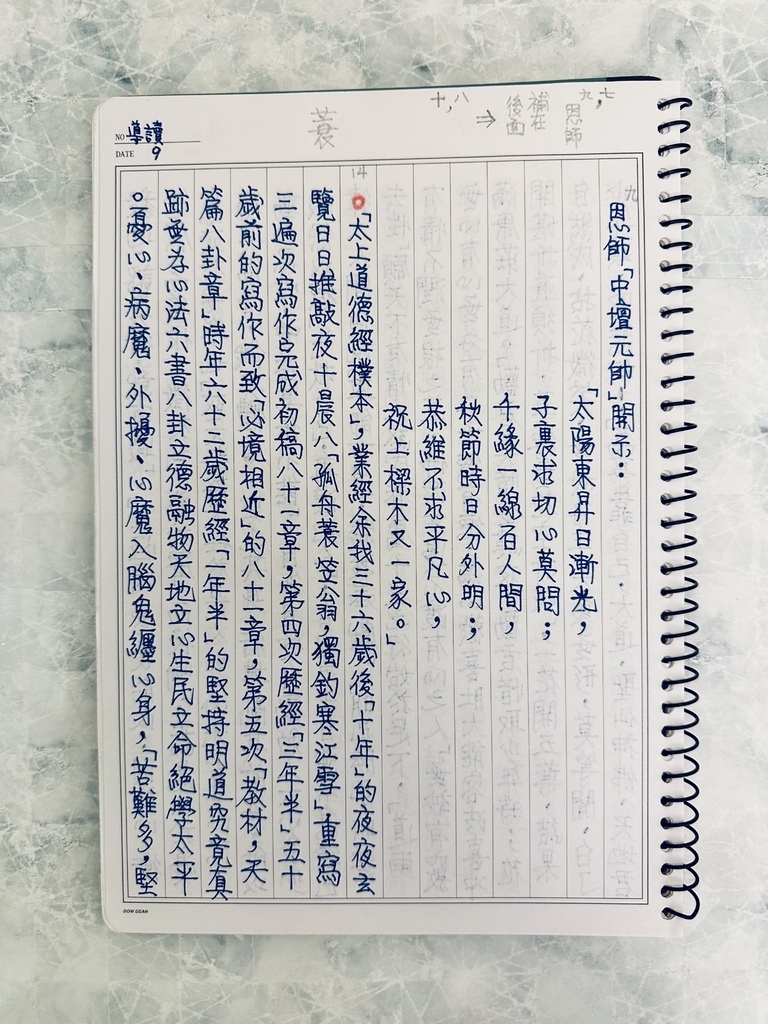 NO 導讀
DATE 9
蓑
十,八
⇒
補在
後面
恩師
九,七
九
恩師「中壇元帥」開示:
「太陽東昇日漸光,
子裏求切心莫問;
千緣一線百人間,
秋節時日分外明;
恭維不求平凡心,
祝上樑木又一家。」
14
「太上道德經樸本」,業經余我三十六歲後「十年」的夜夜玄
覽日日推敲夜十晨八「孤舟蓑笠翁,獨釣寒江雪」重寫
三遍次寫作完成初稿八十一章,第四次歷經「三年半」五十
歲前的寫作而致「必境相近」的八十一章,第五次「教材,天
篇八卦章」時年六十二歲歷經「一年半」的堅持明道究竟真
跡無為心法六書八卦立德融物天地立心生民立命絕學太平
。憂心、病魔、外擾、心魔入腦鬼纏心身,「苦難多,堅
DOW DEAH